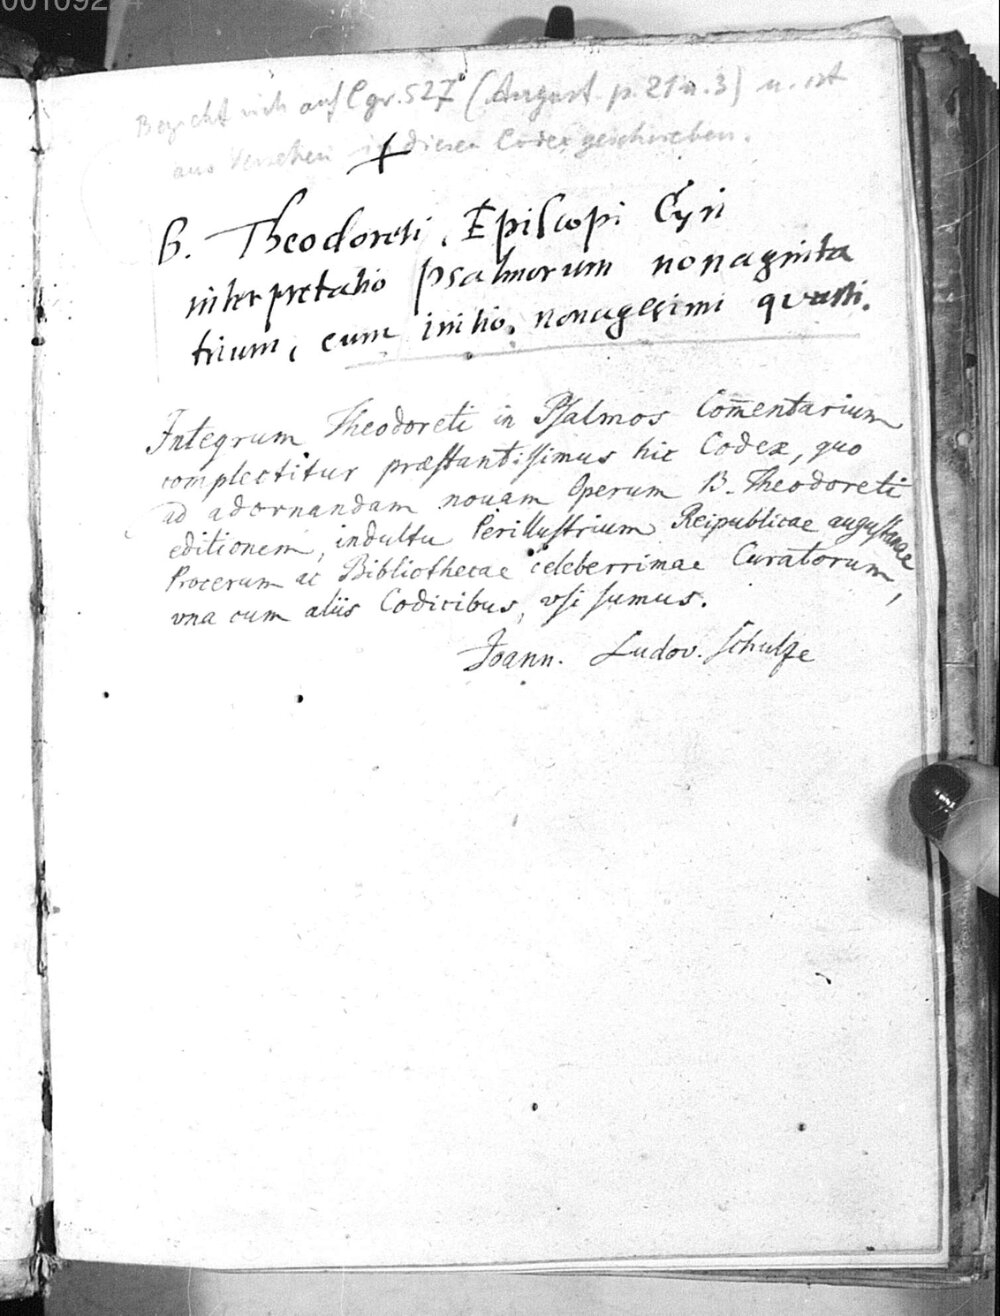 Bezieht sich auf Cgr. 527 (August. p. 21 n. 3) u. ist
aus Versehen in diesen Codex geschrieben.
B. Theodoreti, Episcopi Cyri
interpretatio psalmorum nonaginta
trium, cum initio nonagesimi quarti.
Integrum Theodoreti in Psalmos Com̄entarium
complectitur præstantissimus hic Codex, quo
ad adornandam novam Operum B. Theodoreti
editionem, indultu Perillustrium Reipublicae augustanae
Procerum ac Bibliothecae celeberrimae Curatorum,
vna cum aliis Codicibus, vsi sumus.
Joann. Ludov. Schulze